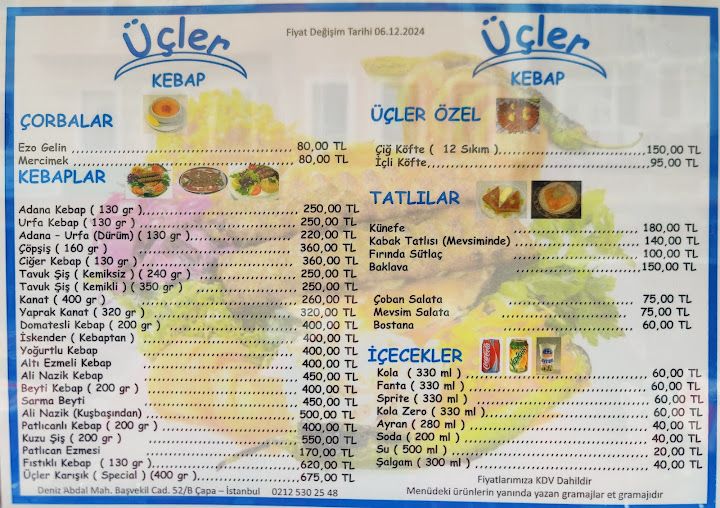 Üçler
KEBAP
Fiyat Değişim Tarihi 06.12.2024
Üçler
KEBAP
ÇORBALAR
Ezo Gelin 80,00 TL
Mercimek 80,00 TL
KEBAPLAR
Adana Kebap ( 130 gr ) 250,00 TL
Urfa Kebap ( 130 gr ) 250,00 TL
Adana - Urfa (Dürüm) ( 130 gr ) 220,00 TL
Çöpşiş ( 160 gr ) 360,00 TL
Ciğer Kebap ( 130 gr ) 360,00 TL
Tavuk Şiş ( Kemiksiz ) ( 240 gr ) 250,00 TL
Tavuk Şiş ( Kemikli ) ( 350 gr ) 250,00 TL
Kanat ( 400 gr ) 260,00 TL
Yaprak Kanat ( 320 gr ) 320,00 TL
Domatesli Kebap ( 200 gr ) 400,00 TL
İskender ( Kebaptan ) 400,00 TL
Yoğurtlu Kebap 400,00 TL
Altı Ezmeli Kebap 400,00 TL
Ali Nazik Kebap 450,00 TL
Beyti Kebap ( 200 gr ) 400,00 TL
Sarma Beyti 450,00 TL
Ali Nazik (Kuşbaşından) 500,00 TL
Patlıcanlı Kebap ( 200 gr ) 400,00 TL
Kuzu Şiş ( 200 gr ) 550,00 TL
Patlıcan Ezmesi 170,00 TL
Fıstıklı Kebap ( 130 gr ) 620,00 TL
Üçler Karışık ( Special ) (400 gr ) 675,00 TL
Deniz Abdal Mah. Başvekil Cad. 52/B Çapa – İstanbul 0212 530 25 48
ÜÇLER ÖZEL
Çiğ Köfte ( 12 Sıkım ) 150,00 TL
İçli Köfte 95,00 TL
TATLILAR
Künefe 180,00 TL
Kabak Tatlısı (Mevsiminde) 140,00 TL
Fırında Sütlaç 100,00 TL
Baklava 150,00 TL
Çoban Salata 75,00 TL
Mevsim Salata 75,00 TL
Bostana 60,00 TL
İÇECEKLER
Kola ( 330 ml ) 60,00 TL
Fanta ( 330 ml ) 60,00 TL
Sprite ( 330 ml ) 60,00 TL
Kola Zero ( 330 ml ) 60,00 TL
Ayran ( 280 ml ) 40,00 TL
Soda ( 200 ml ) 40,00 TL
Su ( 500 ml ) 20,00 TL
Şalgam ( 300 ml ) 40,00 TL
Fiyatlarımıza KDV Dahildir
Menüdeki ürünlerin yanında yazan gramajlar et gramajıdır